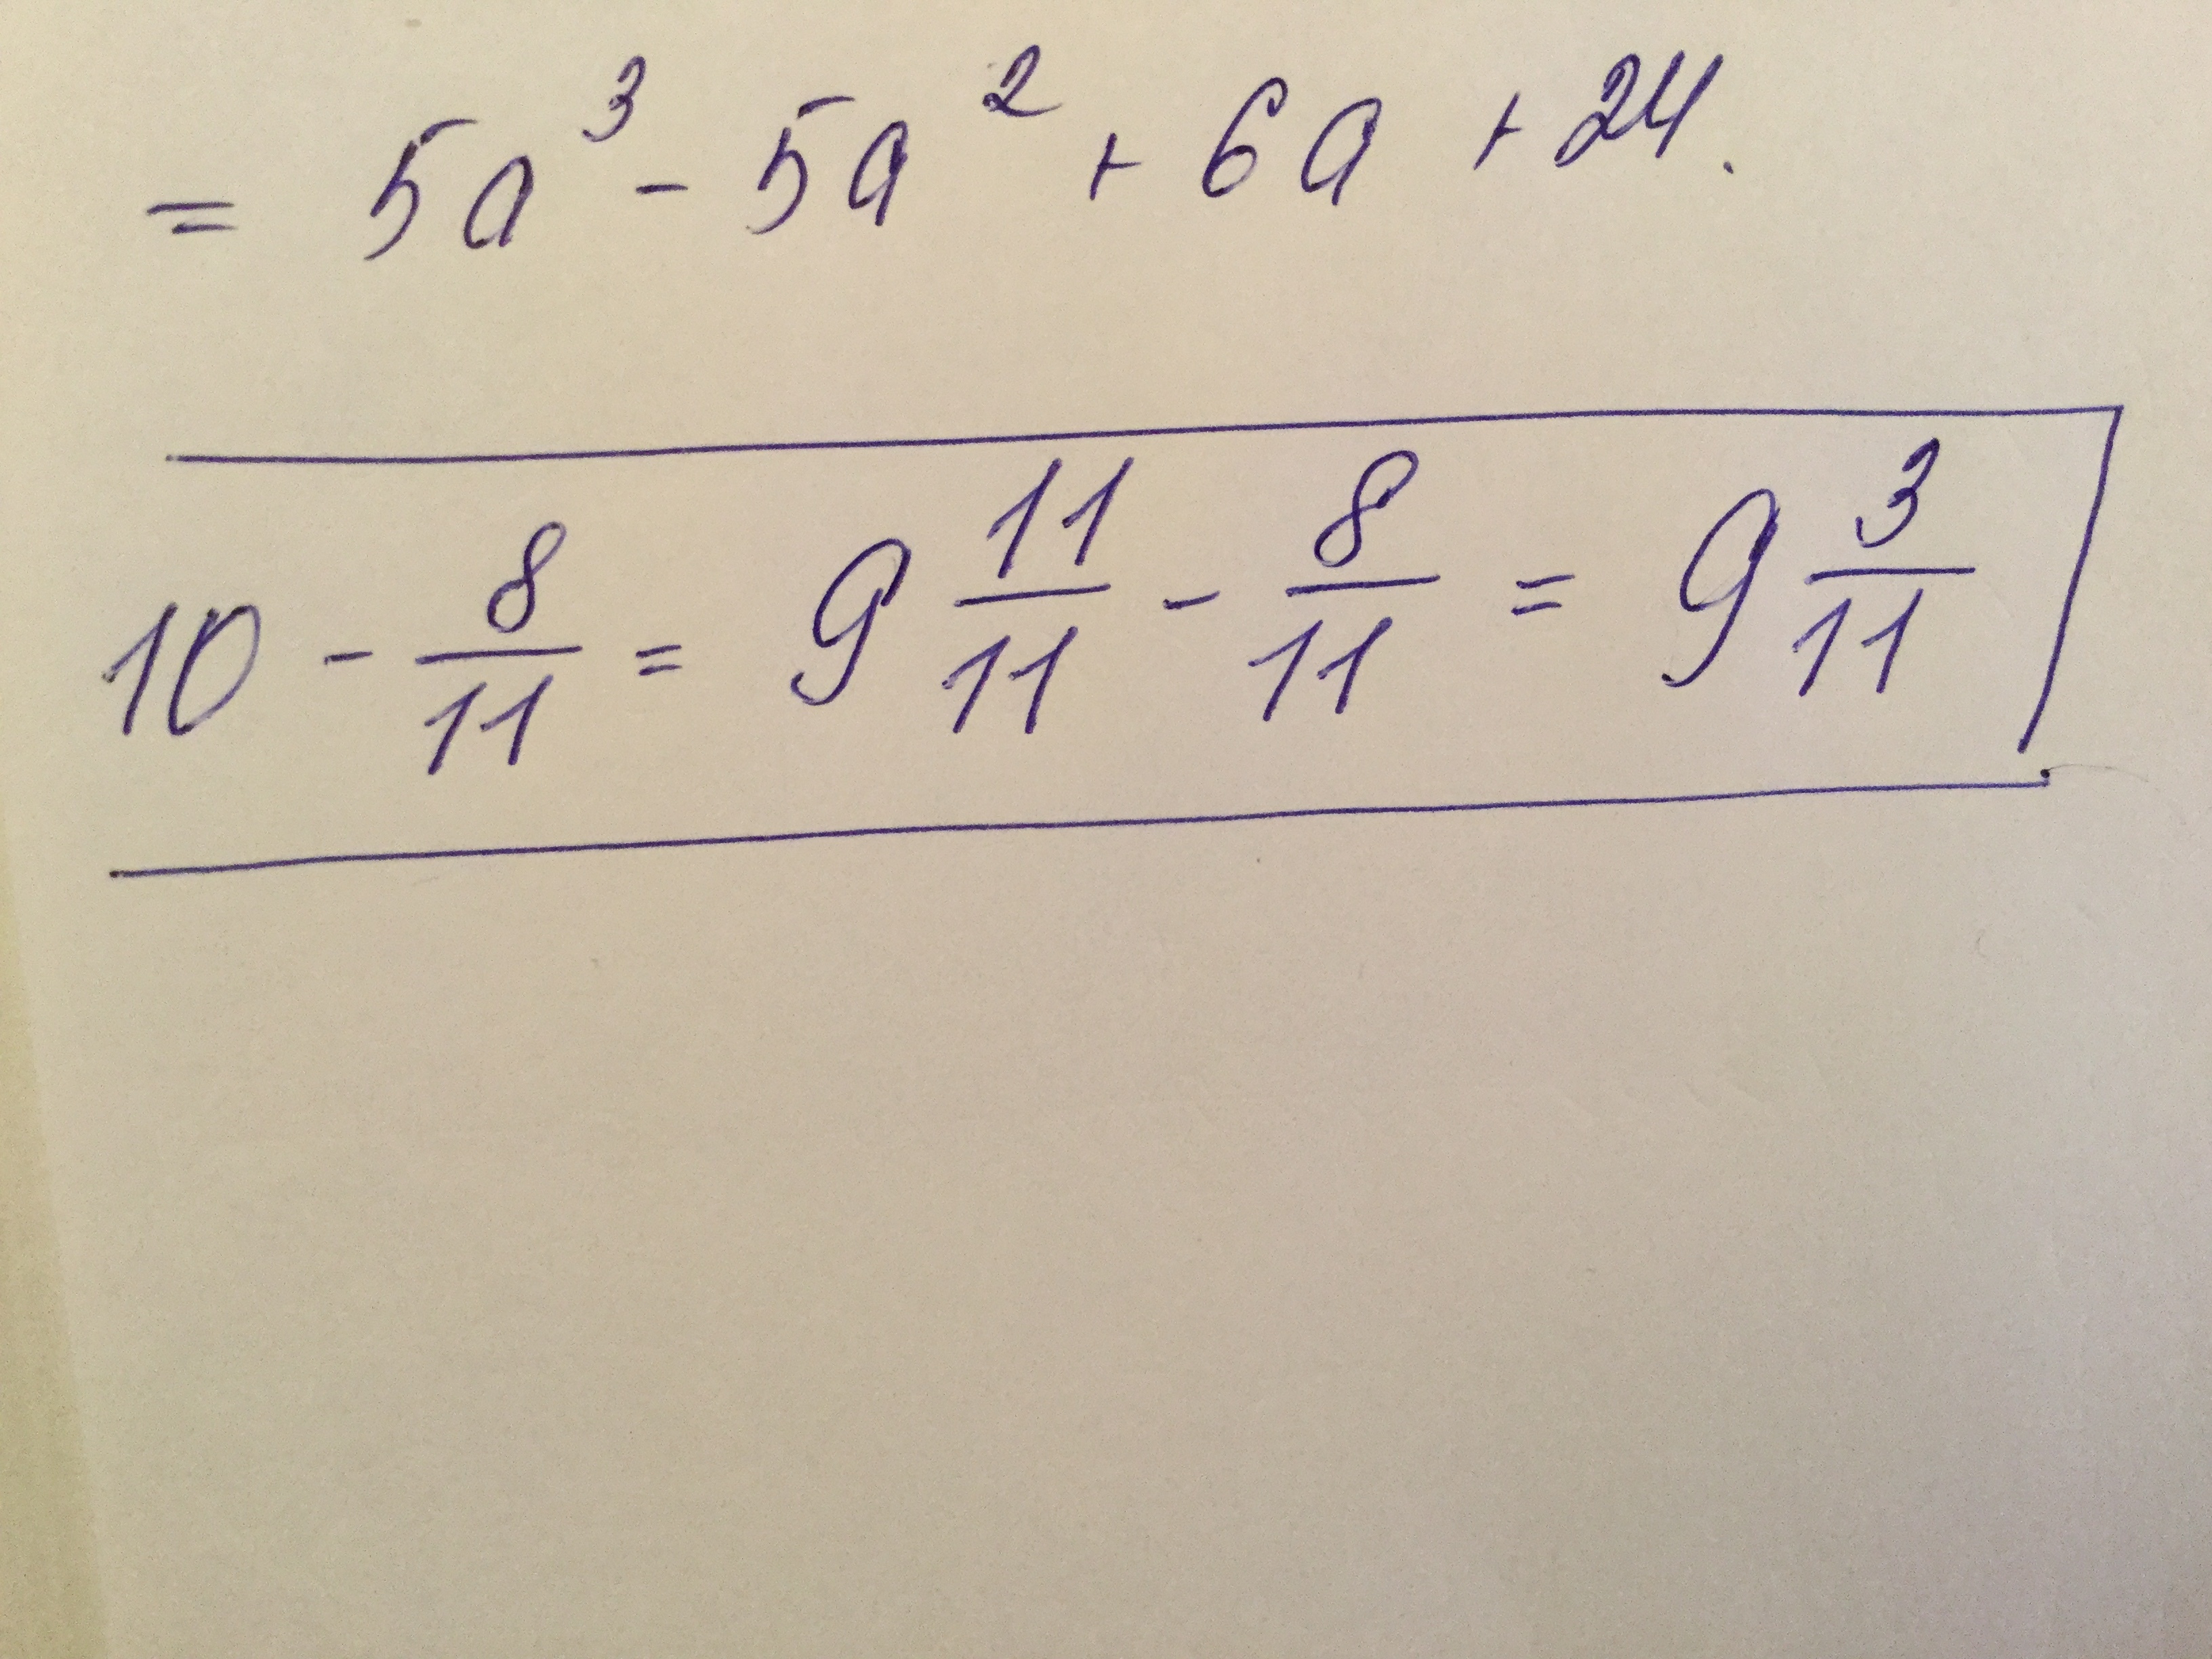 = 5a³ - 5a² + 6a + 24.
10 - 8/11 = 9 11/11 - 8/11 = 9 3/11